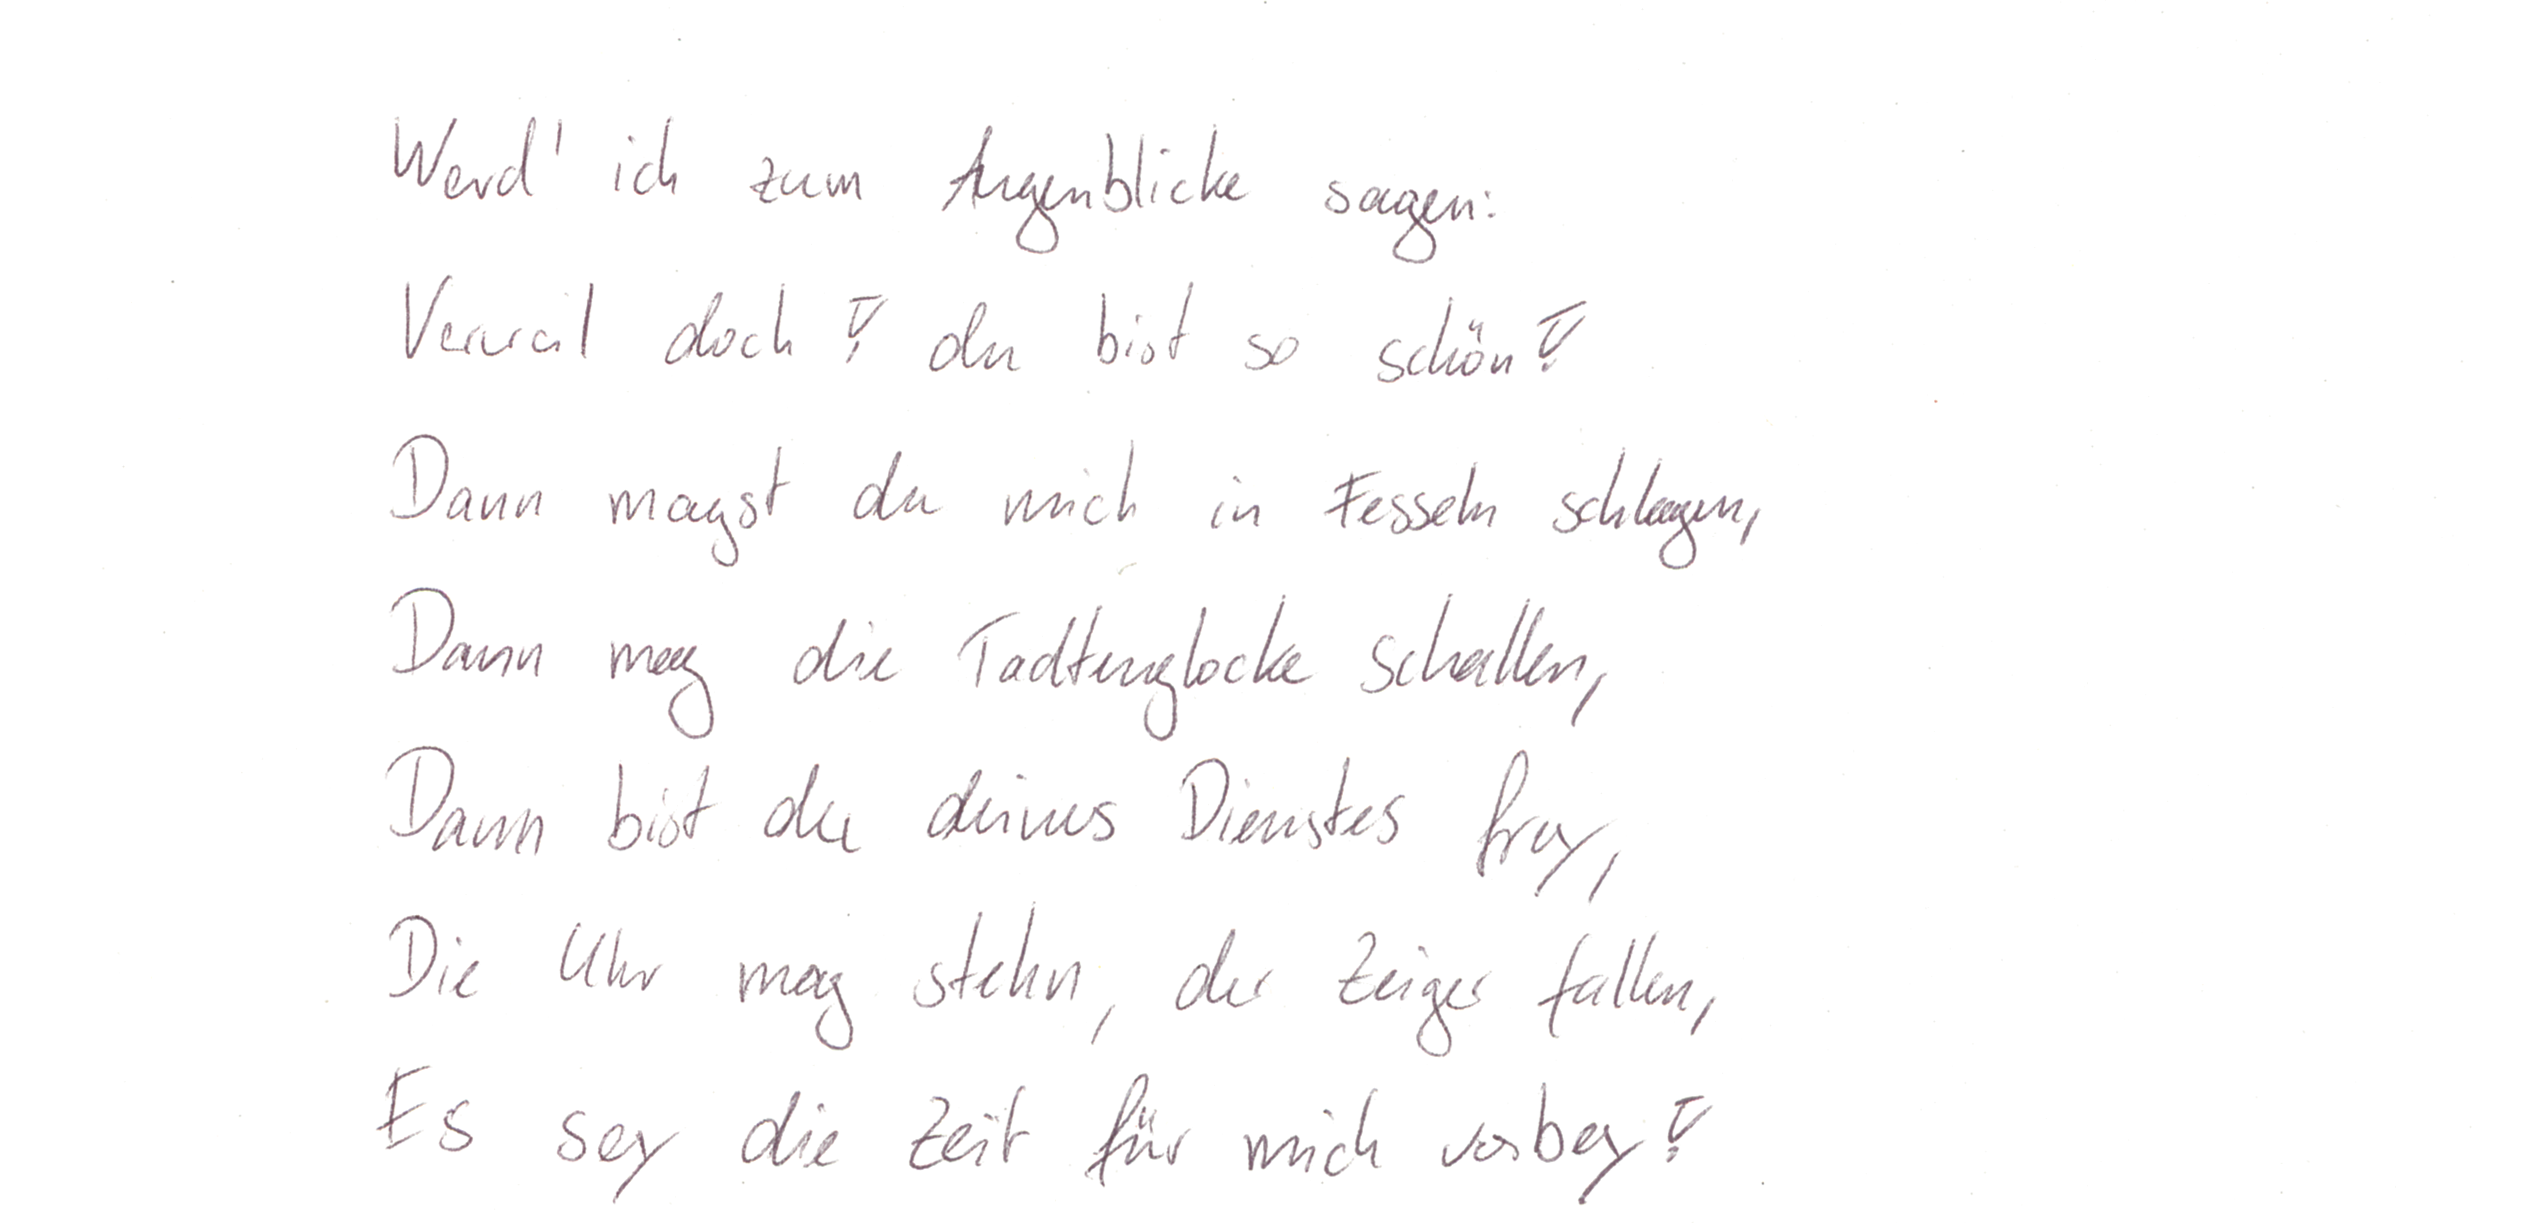 Werd' ich zum Augenblicke sagen:
Verweil doch! du bist so schön!
Dann magst du mich in Fesseln schlagen,
Dann mag die Todtenglocke schallen,
Dann bist du deines Dienstes frey,
Die Uhr mag stehn, der Zeiger fallen,
Es sey die Zeit für mich vorbey!